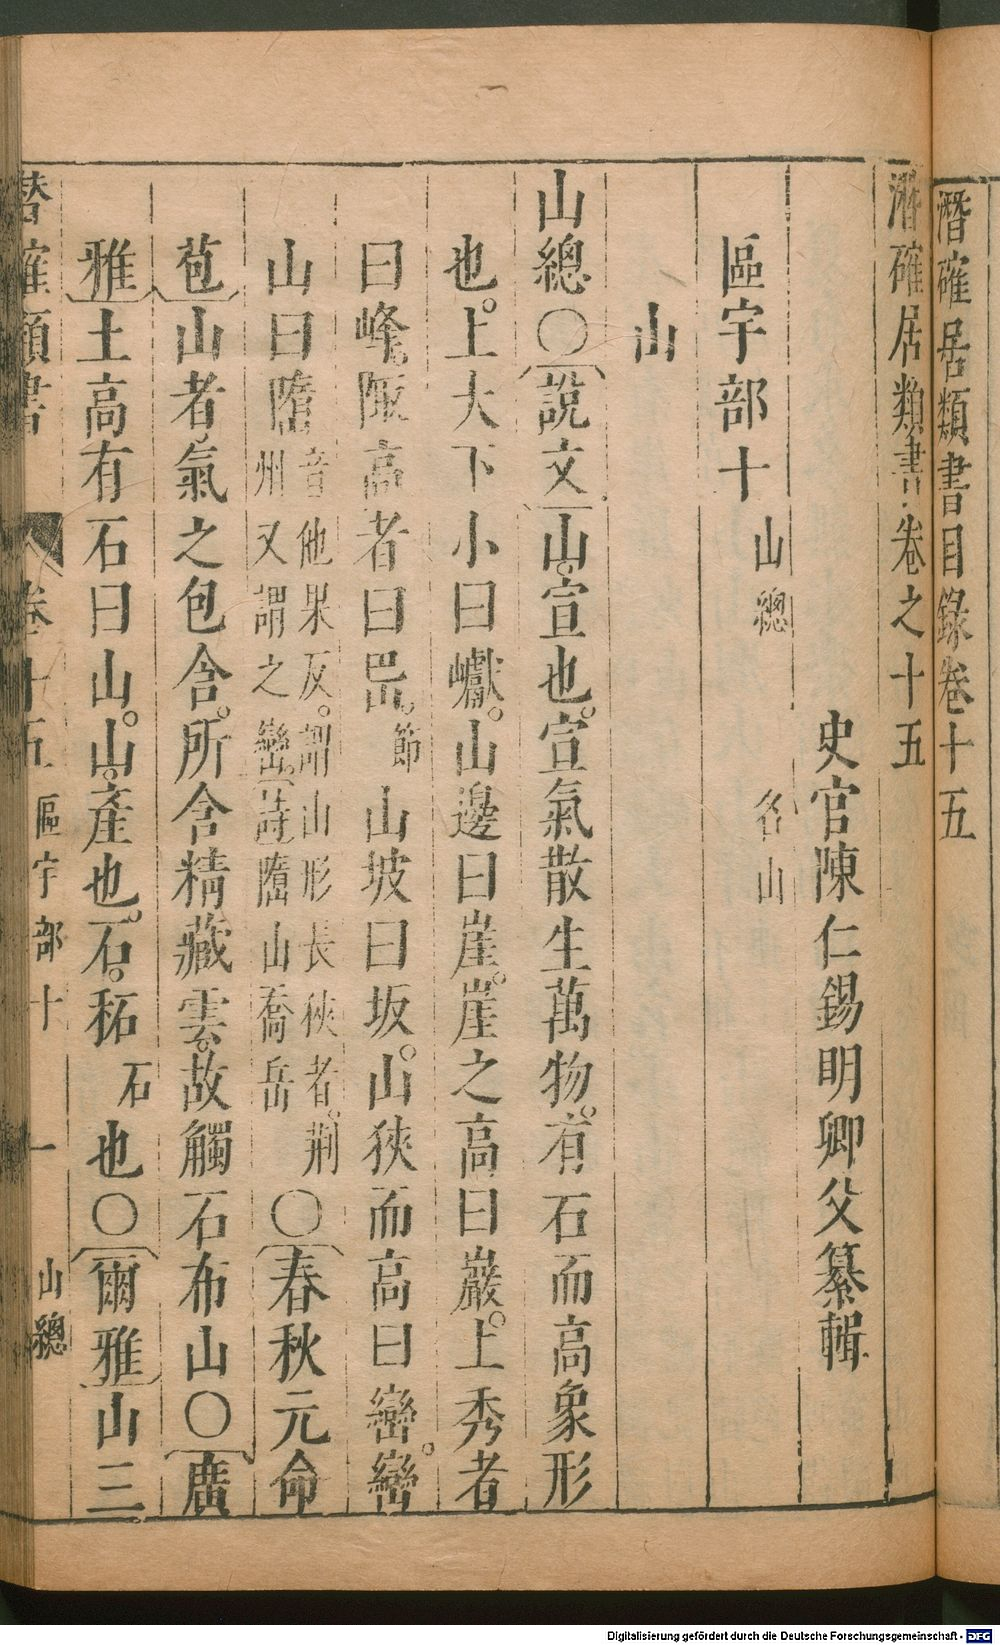 潛確居類書目錄卷十五
潛確居類書卷之十五
史官陳仁錫明卿父纂輯
區宇部十 山總 名山
山
山總○說文山宣也宣氣散生萬物有石而高象形
也上大下小曰巘山邊曰崖崖之高曰巖上秀者
曰峰陬高者曰岊節山坡曰坂山狹而高曰巒巒
山曰嶞音他果反謂山形長狹者荆州又謂之巒詩嶞山喬岳○春秋元命
苞山者氣之包含所含精藏雲故觸石布山○廣
雅土高有石曰山山產也石䄷石也○爾雅山三
潛確類書 卷十五 區宇部十 一 山總
Digitalisierung gefördert durch die Deutsche Forschungsgemeinschaft - DFG